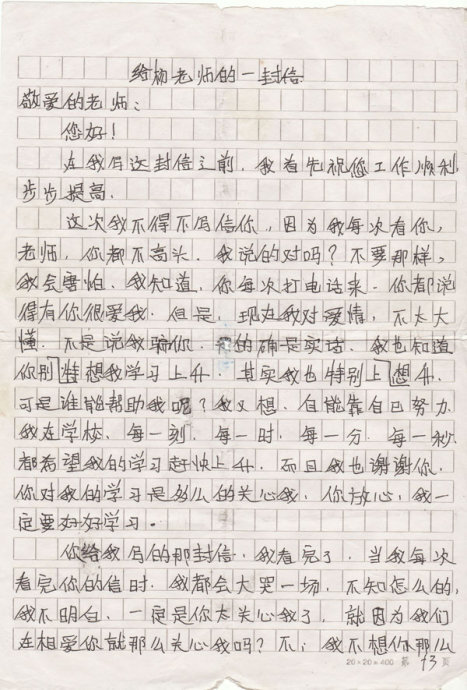 给杨老师的一封信
敬爱的老师：
您好！
在我写这封信之前，我首先祝您工作顺利
步步提高．
这次我不得不写信你，因为我每次看你，
老师，你都不高头．我说的对吗？不要那样，
我会害怕．我知道，你每次打电话来．你都说
得有你很爱我．但是，现在我对爱情，不太大
懂．不是说我骗你．的确是实话．我也知道
你别特想我学习上升．其实我也特别上想升．
可是谁能帮助我呢？我又想．自能靠自己努力
我在学校．每一刻．每一时．每一分．每一秒
都希望我的学习赶快上升．而且我也谢谢你．
你对我的学习是多么的关心我．你放心，我一
定要好好学习．
你给我写的那封信．我看完了．当我每次
看完你的信时．我都会大哭一场．不知怎么的，
我不明白．一定是你太关心我了，就因为我们
在相爱你就那么关心我吗？不，我不想你那么
20×20=400 第 13 页